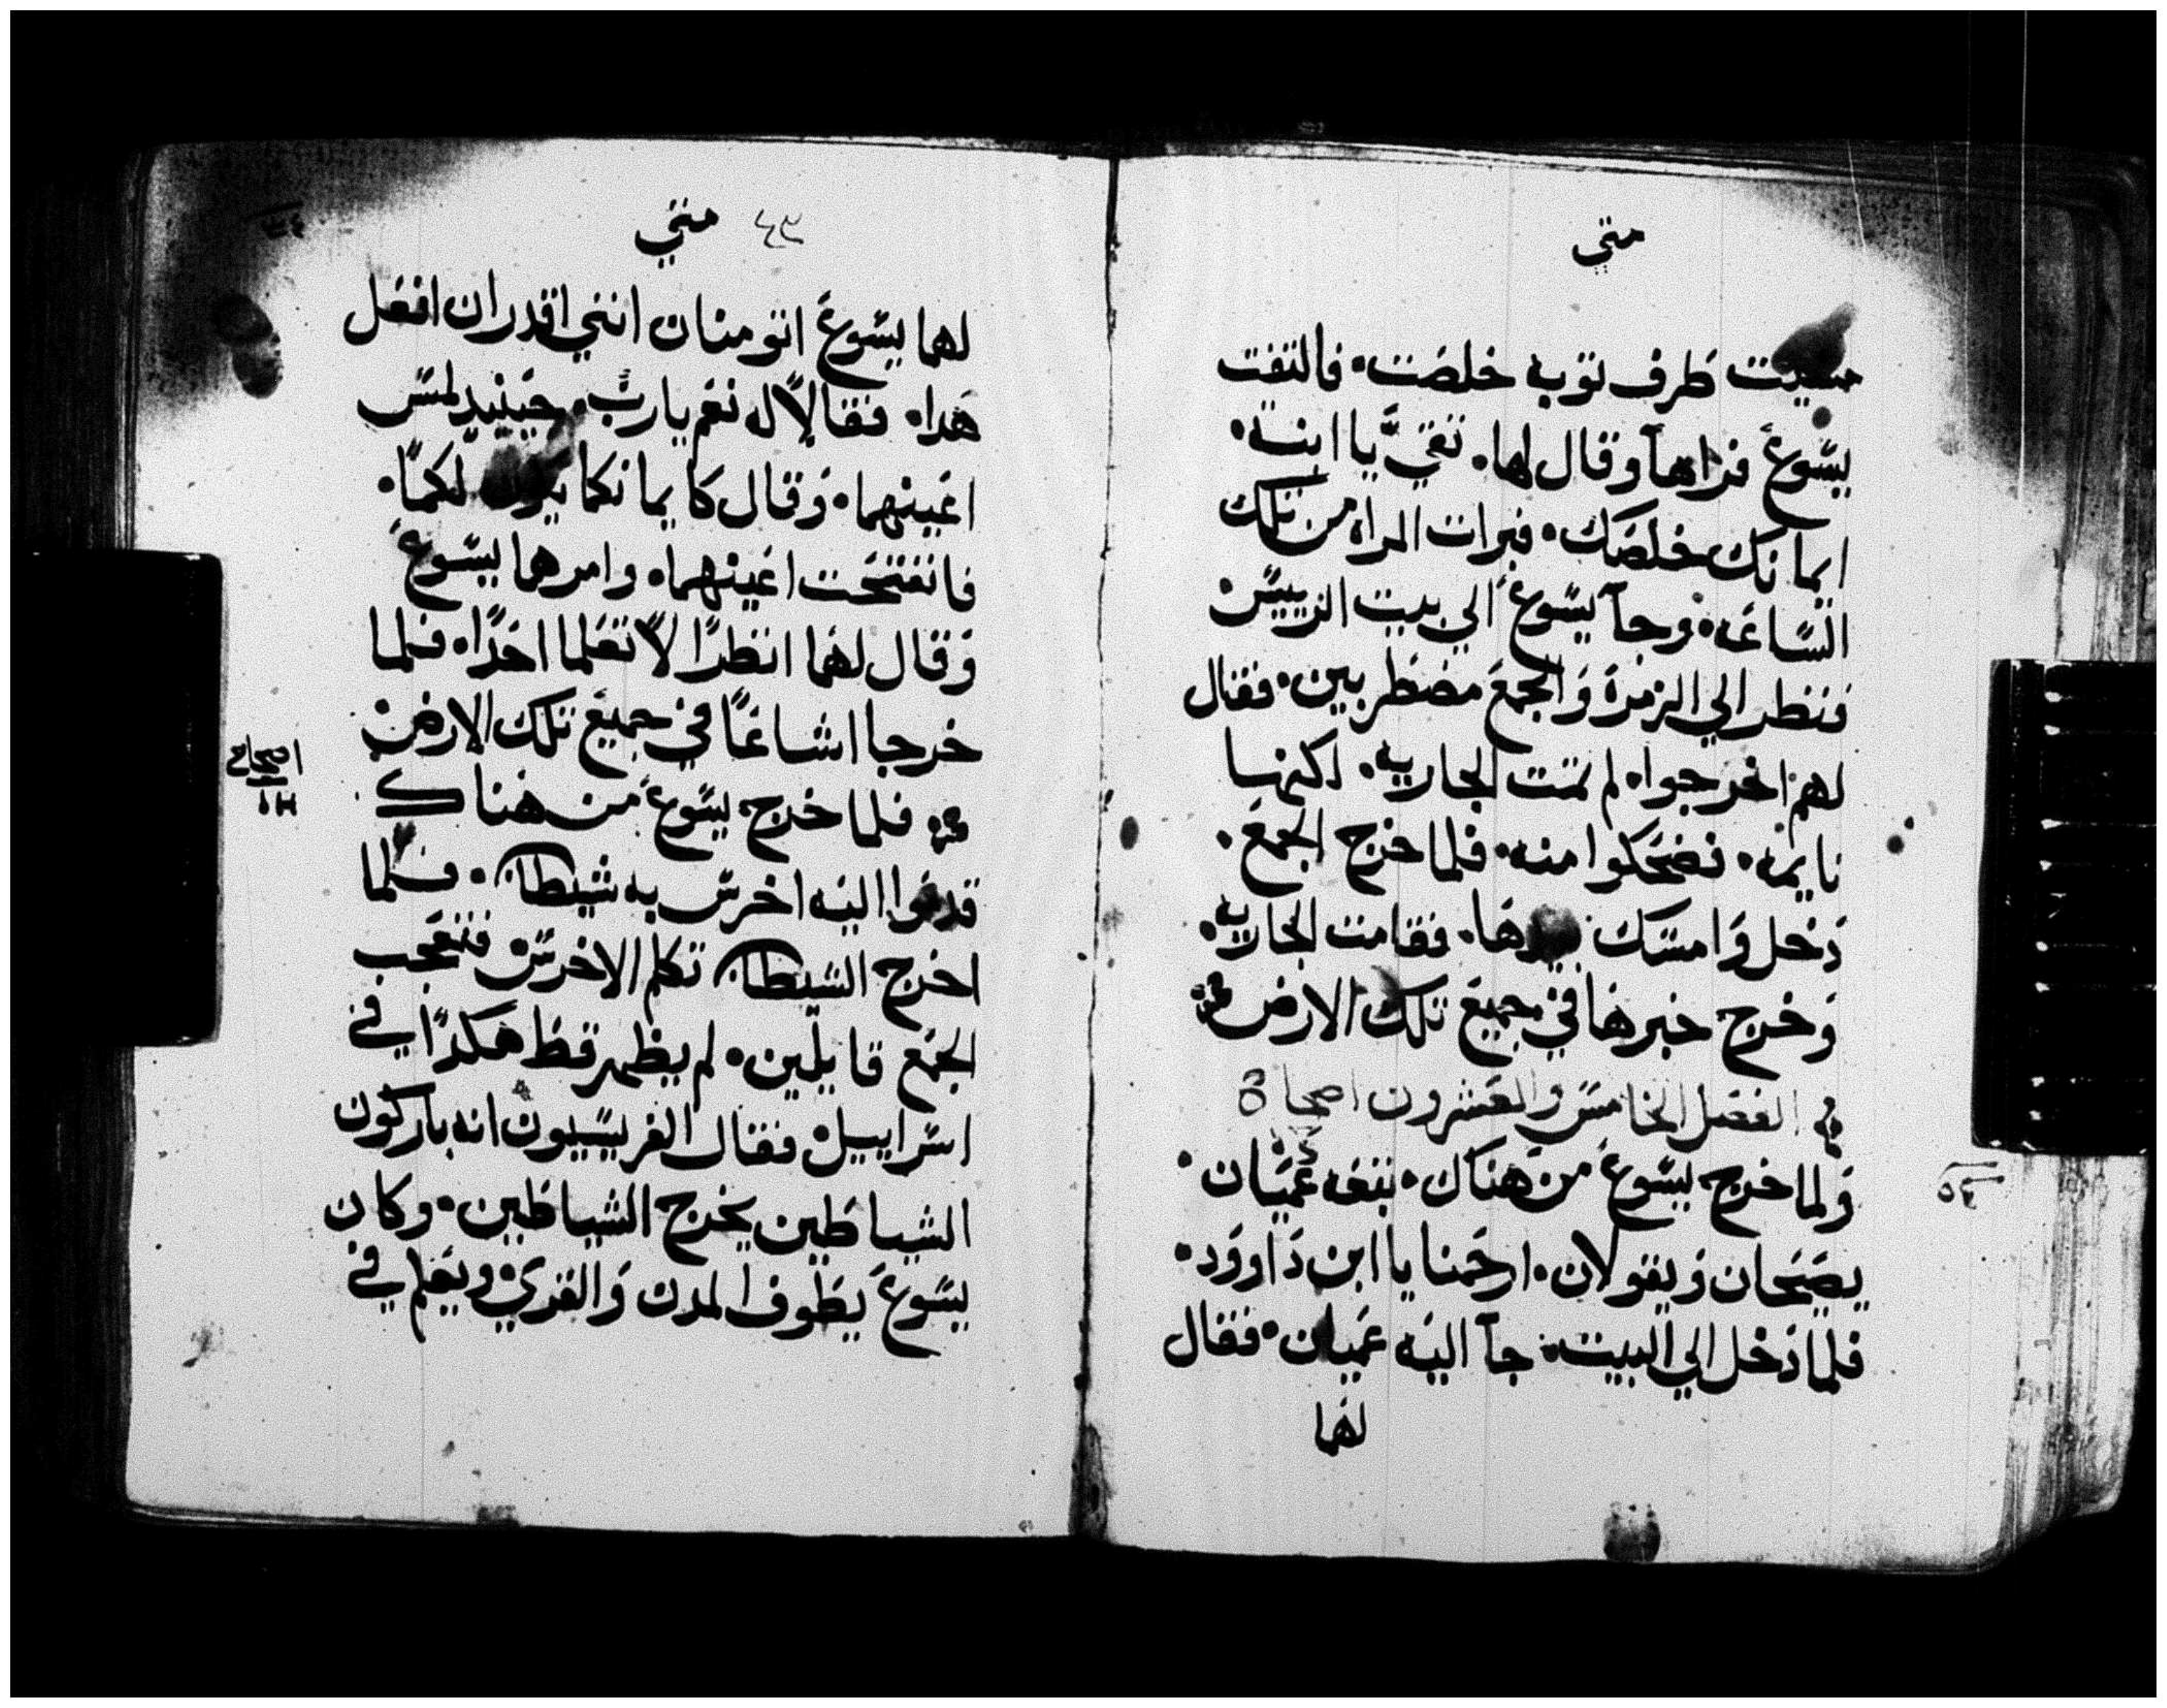 متي
مسيت طرف توبه خلصت. فالتفت
يسوع فراها وقال لها. تقي يا ابنة.
ايمانك خلصك. فبرات المراه من تلك
الساعه. وجآ يسوع الي بيت الرييس
فنظر الي الزمرة والجمع مضطربين. فقال
لهم اخرجوا. لم تمت الجاريه. لكنها
نايمه. فضحكوا منه. فلما خرج الجمع.
دخل وامسك بيدها. فقامت الجاريه.
وخرج خبرها في جميع تلك الارض
الفصل الخامس والعشرون اصحا
ولما خرج يسوع من هناك. تبعه عميان.
يصيحان ويقولان. ارحمنا يا ابن داوود.
فلما دخل الي البيت. جآ اليه عميان. فقال
لهما
متي ٤٣
لهما يسوع اتومنان انني اقدر ان افعل
هدا. فقالا له نعم يارب. حينيد لمس
اعينهما. وقال كايمانكما يكون لكما.
فانفتحت اعينهما. وامرهما يسوع
وقال لهما انظرا لا تعلما احدا. فلما
خرجا اشاعا في جميع تلك الارض
فلما خرج يسوع من هناك
قدموا اليه اخرس به شيطان. فلما
اخرج الشيطان تكلم الاخرس فتعجب
الجمع قايلين. لم يظهر قط هكدا في
اسراييل. فقال الفريسيون انه باركون
الشياطين يخرج الشياطين. وكان
يسوع يطوف المدن والقري. ويعلم في
اصحاح